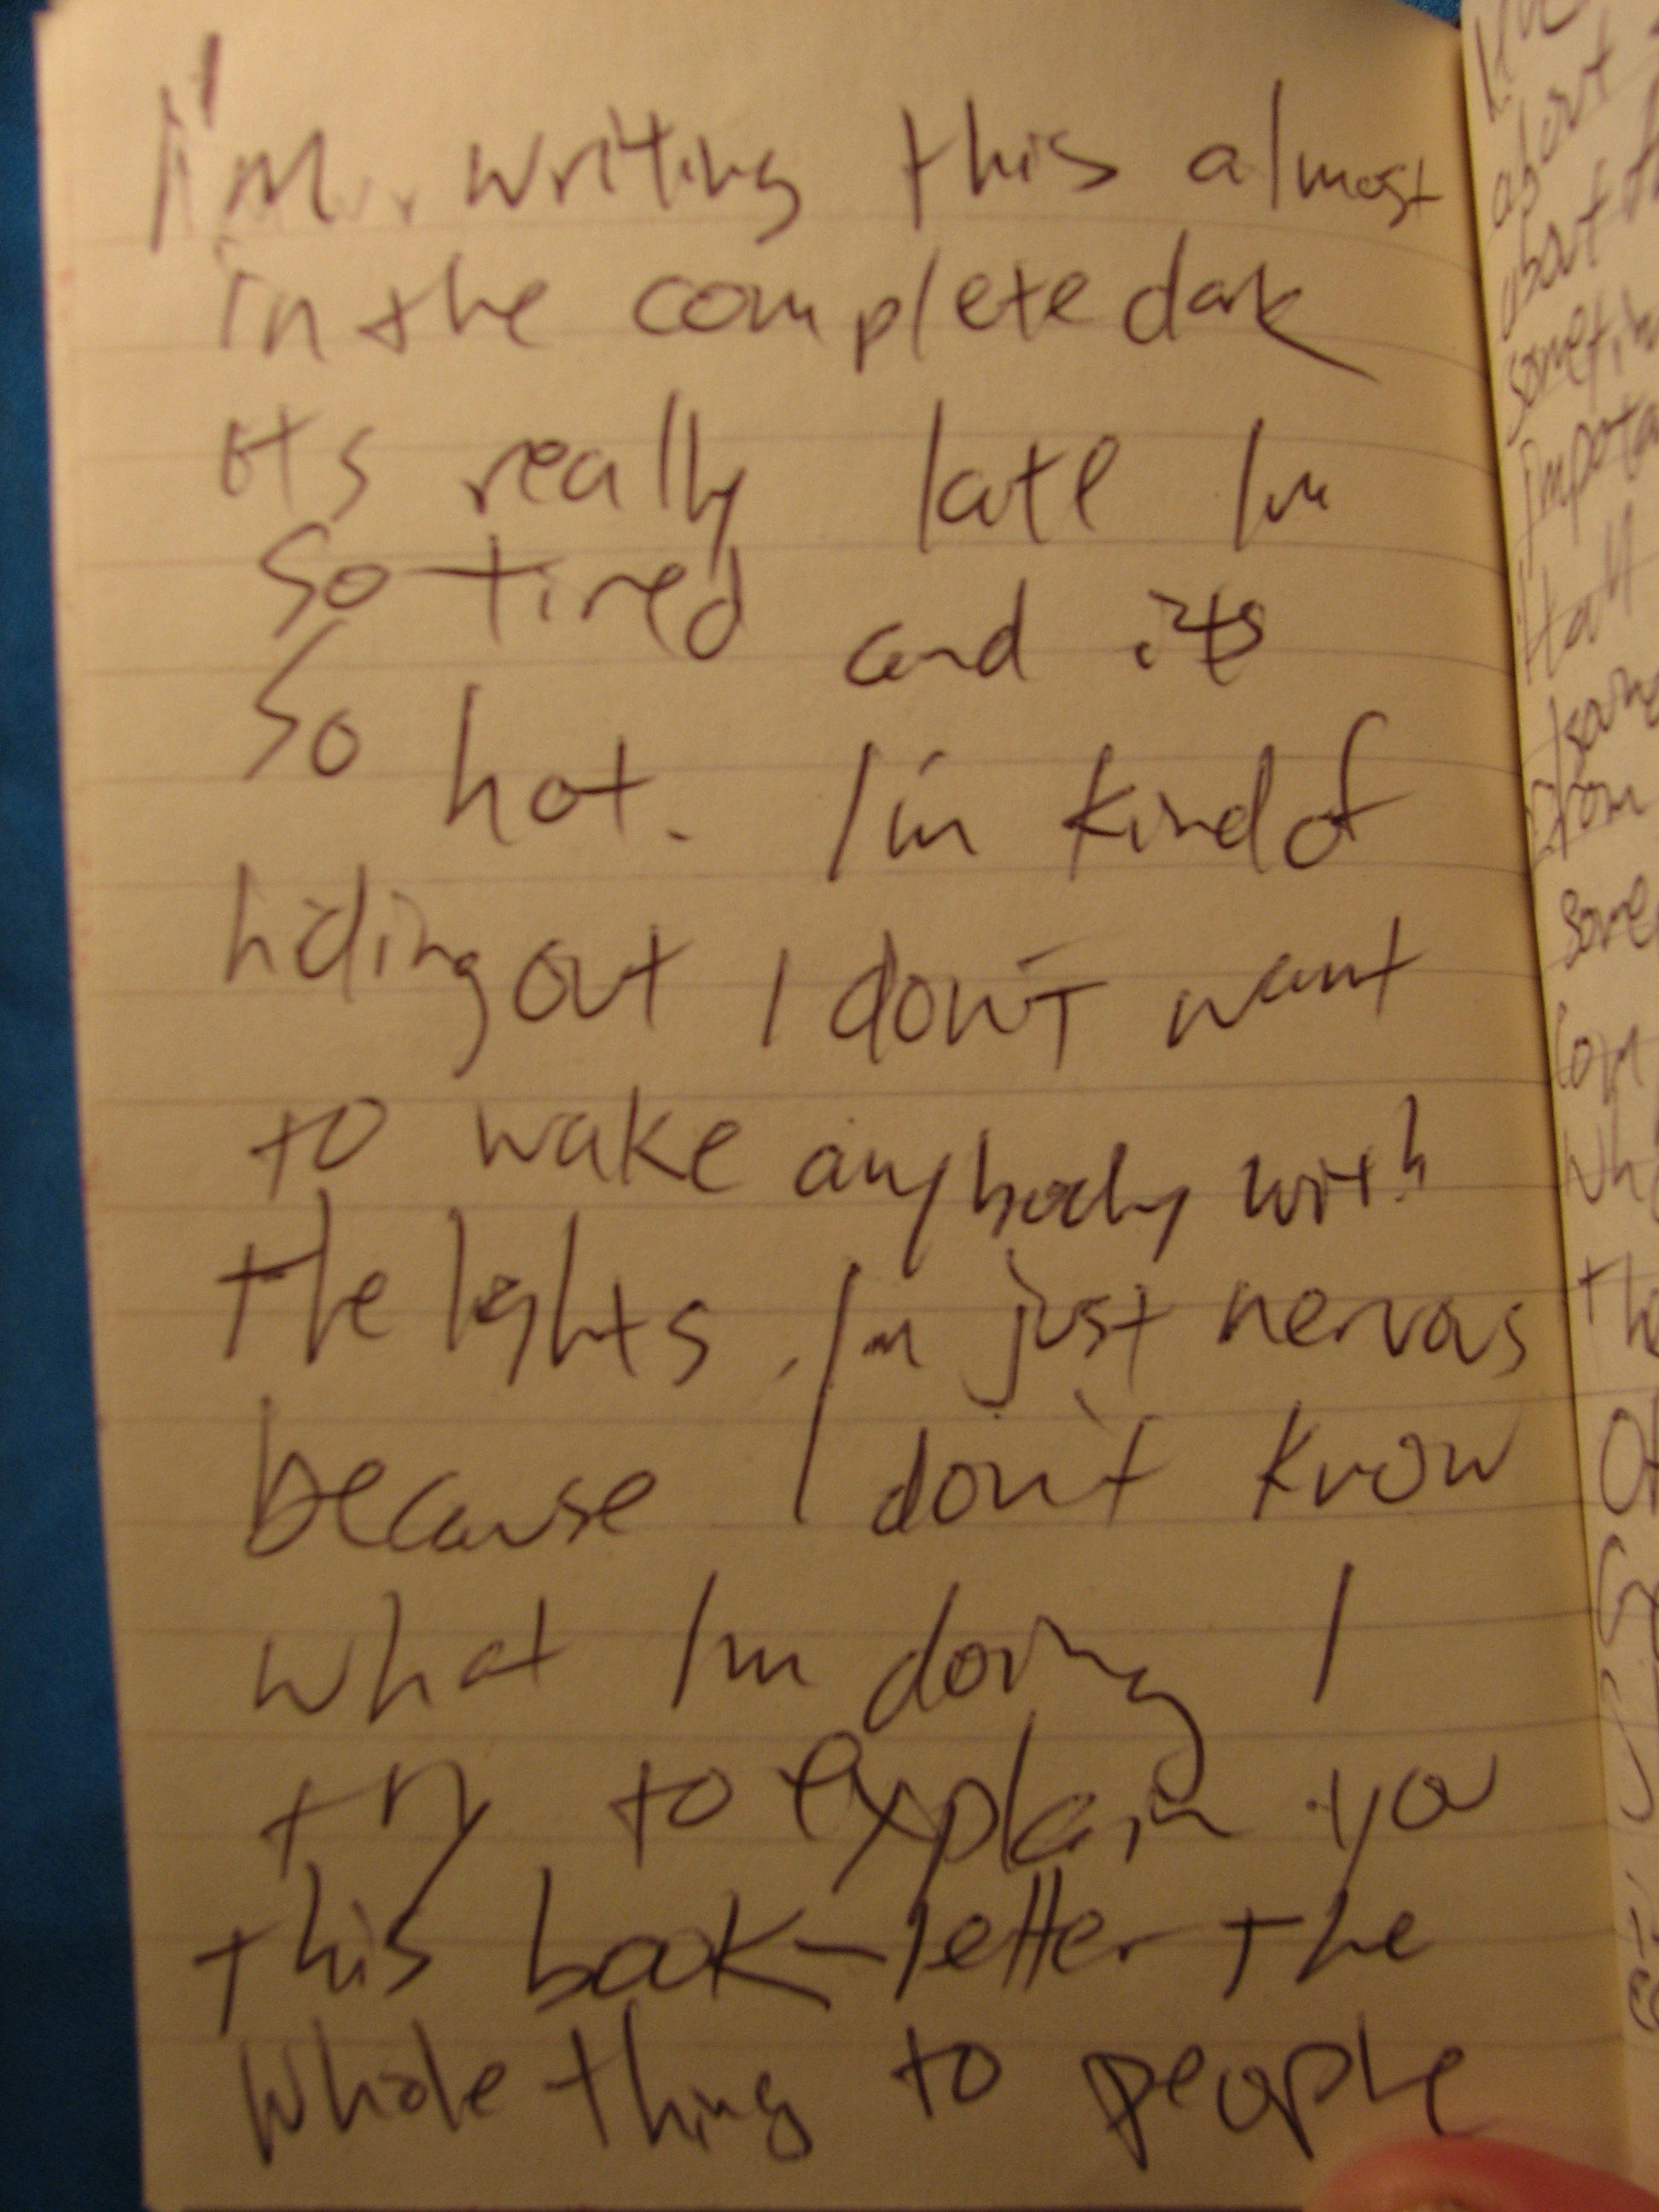 I'm writing this almost
in the complete dark
its really late Im
so tired and its
so hot. I'm kind of
hiding out I don't want
to wake anybody with
the lights. Im just nervous
because I don't know
what Im doing I
try to explain you
this book-letter the
whole thing to people
about
about